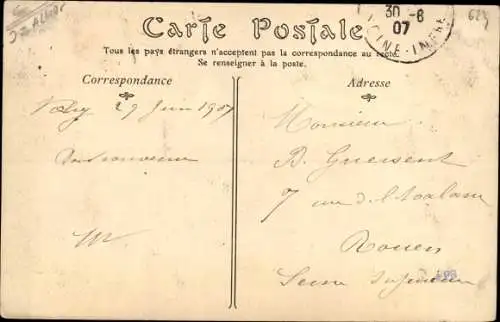 Carte Postale
Tous les pays étrangers n'acceptent pas la correspondance au recto.
Se renseigner à la poste.
30-6
07
Correspondance
29 Juin 1907
Bon souvenir
Adresse
Monsieur
B. Guersent
7 rue de l'
Rouen
Seine Inférieure